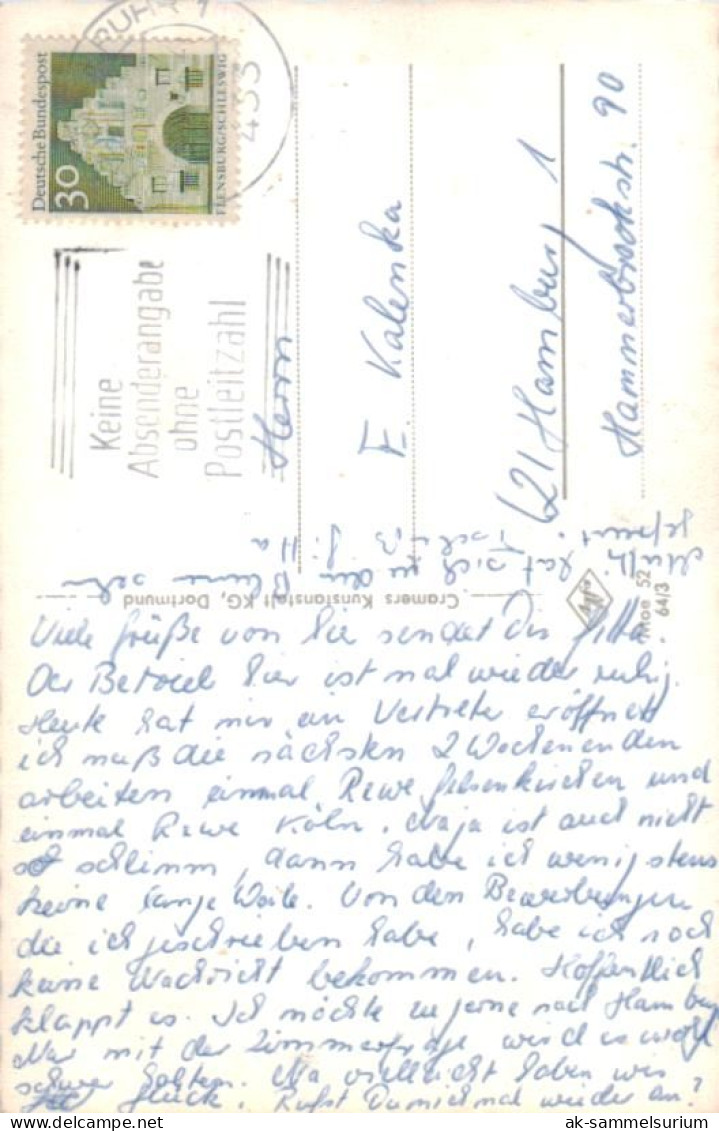 RUHR 1
433
Deutsche Bundespost
30
FLENSBURG/SCHLESWIG
Keine
Absenderangabe
ohne
Postleitzahl
Herrn
F. Kalenka
621 Hamburg 1
Hammerbrookstr. 90
Cramers Kunstanstalt KG, Dortmund
Moe 52
64/3
Viele Grüße von hier sendet Dir Jitta.
Der Betrieb hier ist mal wieder ruhig.
Heute hat mir ein Vertreter eröffnet
ich muß die nächsten 2 Wochenenden
arbeiten einmal Rewe Gelsenkirchen und
einmal Rewe Köln. Naja ist auch nicht
so schlimm, dann habe ich wenigstens
keine lange Weile. Von den Bewerbungen
die ich geschrieben habe, habe ich noch
keine Nachricht bekommen. Hoffentlich
klappt es. Ich möchte so gerne nach Hamburg
Nur mit der Zimmerfrage wird es wohl
schwer halten. Na vielleicht haben wir
Glück. Rufst Du mich mal wieder an?
hat sich zu den Blumen sehr
gefreut. Tschüß Jitta